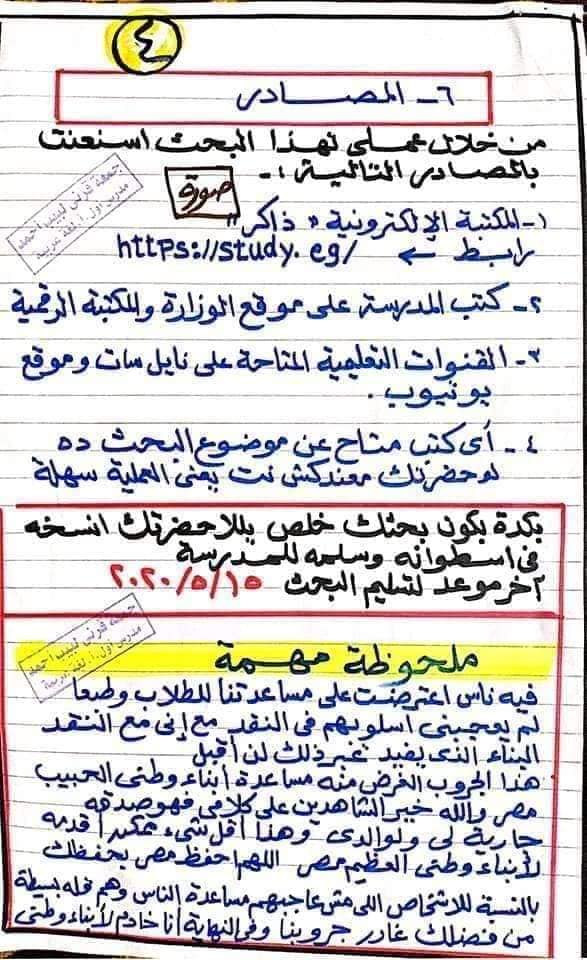 ٤
٦- المصادر
من خلال عملى لهذا البحث استعنت
بالمصادر التالية :-
صورة
١- المكتبة الإلكترونية " ذاكر "
رابط ← https://study.eg/
٢- كتب المدرسة على موقع الوزارة والمكتبة الرقمية
٣- القنوات التعليمية المتاحة على نايل سات وموقع
يوتيوب .
٤- أى كتب متاح عن موضوع البحث ده
لو حضرتك معندكش نت يعنى العملية سهلة
بكدة يكون بحثك خلص يللا حضرتك انسخه
فى اسطوانه وسلمه للمدرسة
آخر موعد لتسليم البحث ٢٠٢٠/٥/١٥
جمعة قرنى لبيب احمد
مدرس اول أ. لغة عربية
جمعة قرنى لبيب احمد
مدرس اول أ. لغة عربية
ملحوظة مهمة
فيه ناس اعترضت على مساعدتنا للطلاب وطبعا
لم يعجبنى اسلوبهم فى النقد مع إنى مع النقد
البناء الذى يفيد غير ذلك لن أقبل
هذا الجروب الغرض منه مساعدة أبناء وطنى الحبيب
مصر والله خير الشاهدين على كلامى فهو صدقه
جارية لى ولوالدى وهذا أقل شىء ممكن أقدمه
لأبناء وطنى العظيم مصر اللهم احفظ مصر بحفظك
بالنسبة للاشخاص اللى مش عاجبهم مساعدة الناس وهم قله بسيطة
من فضلك غادر جروبنا وفى النهاية أنا خادم لأبناء وطنى